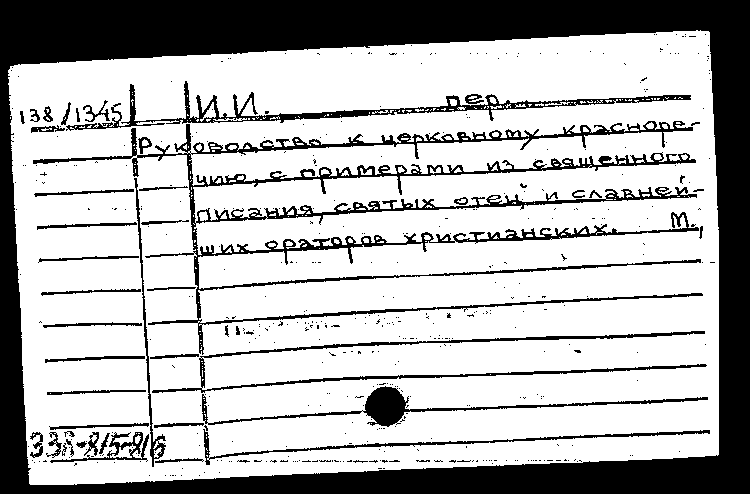 138/1345 И.И. пер.
Руководство к церковному красноре-
чию, с примерами из священного
писания, святых отец и славней-
ших ораторов христианских. М.,
338-815-816